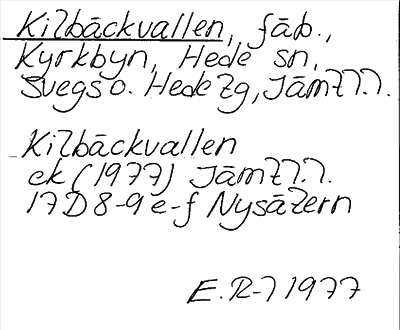 Kilbäckvallen, fäb.,
Kyrkbyn, Hede sn,
Svegs o. Hede tg, Jämtl.l.
Kilbäckvallen
ek (1977) Jämtl.l.
17D 8-9 e-f Nysätern
E. R-l 1977